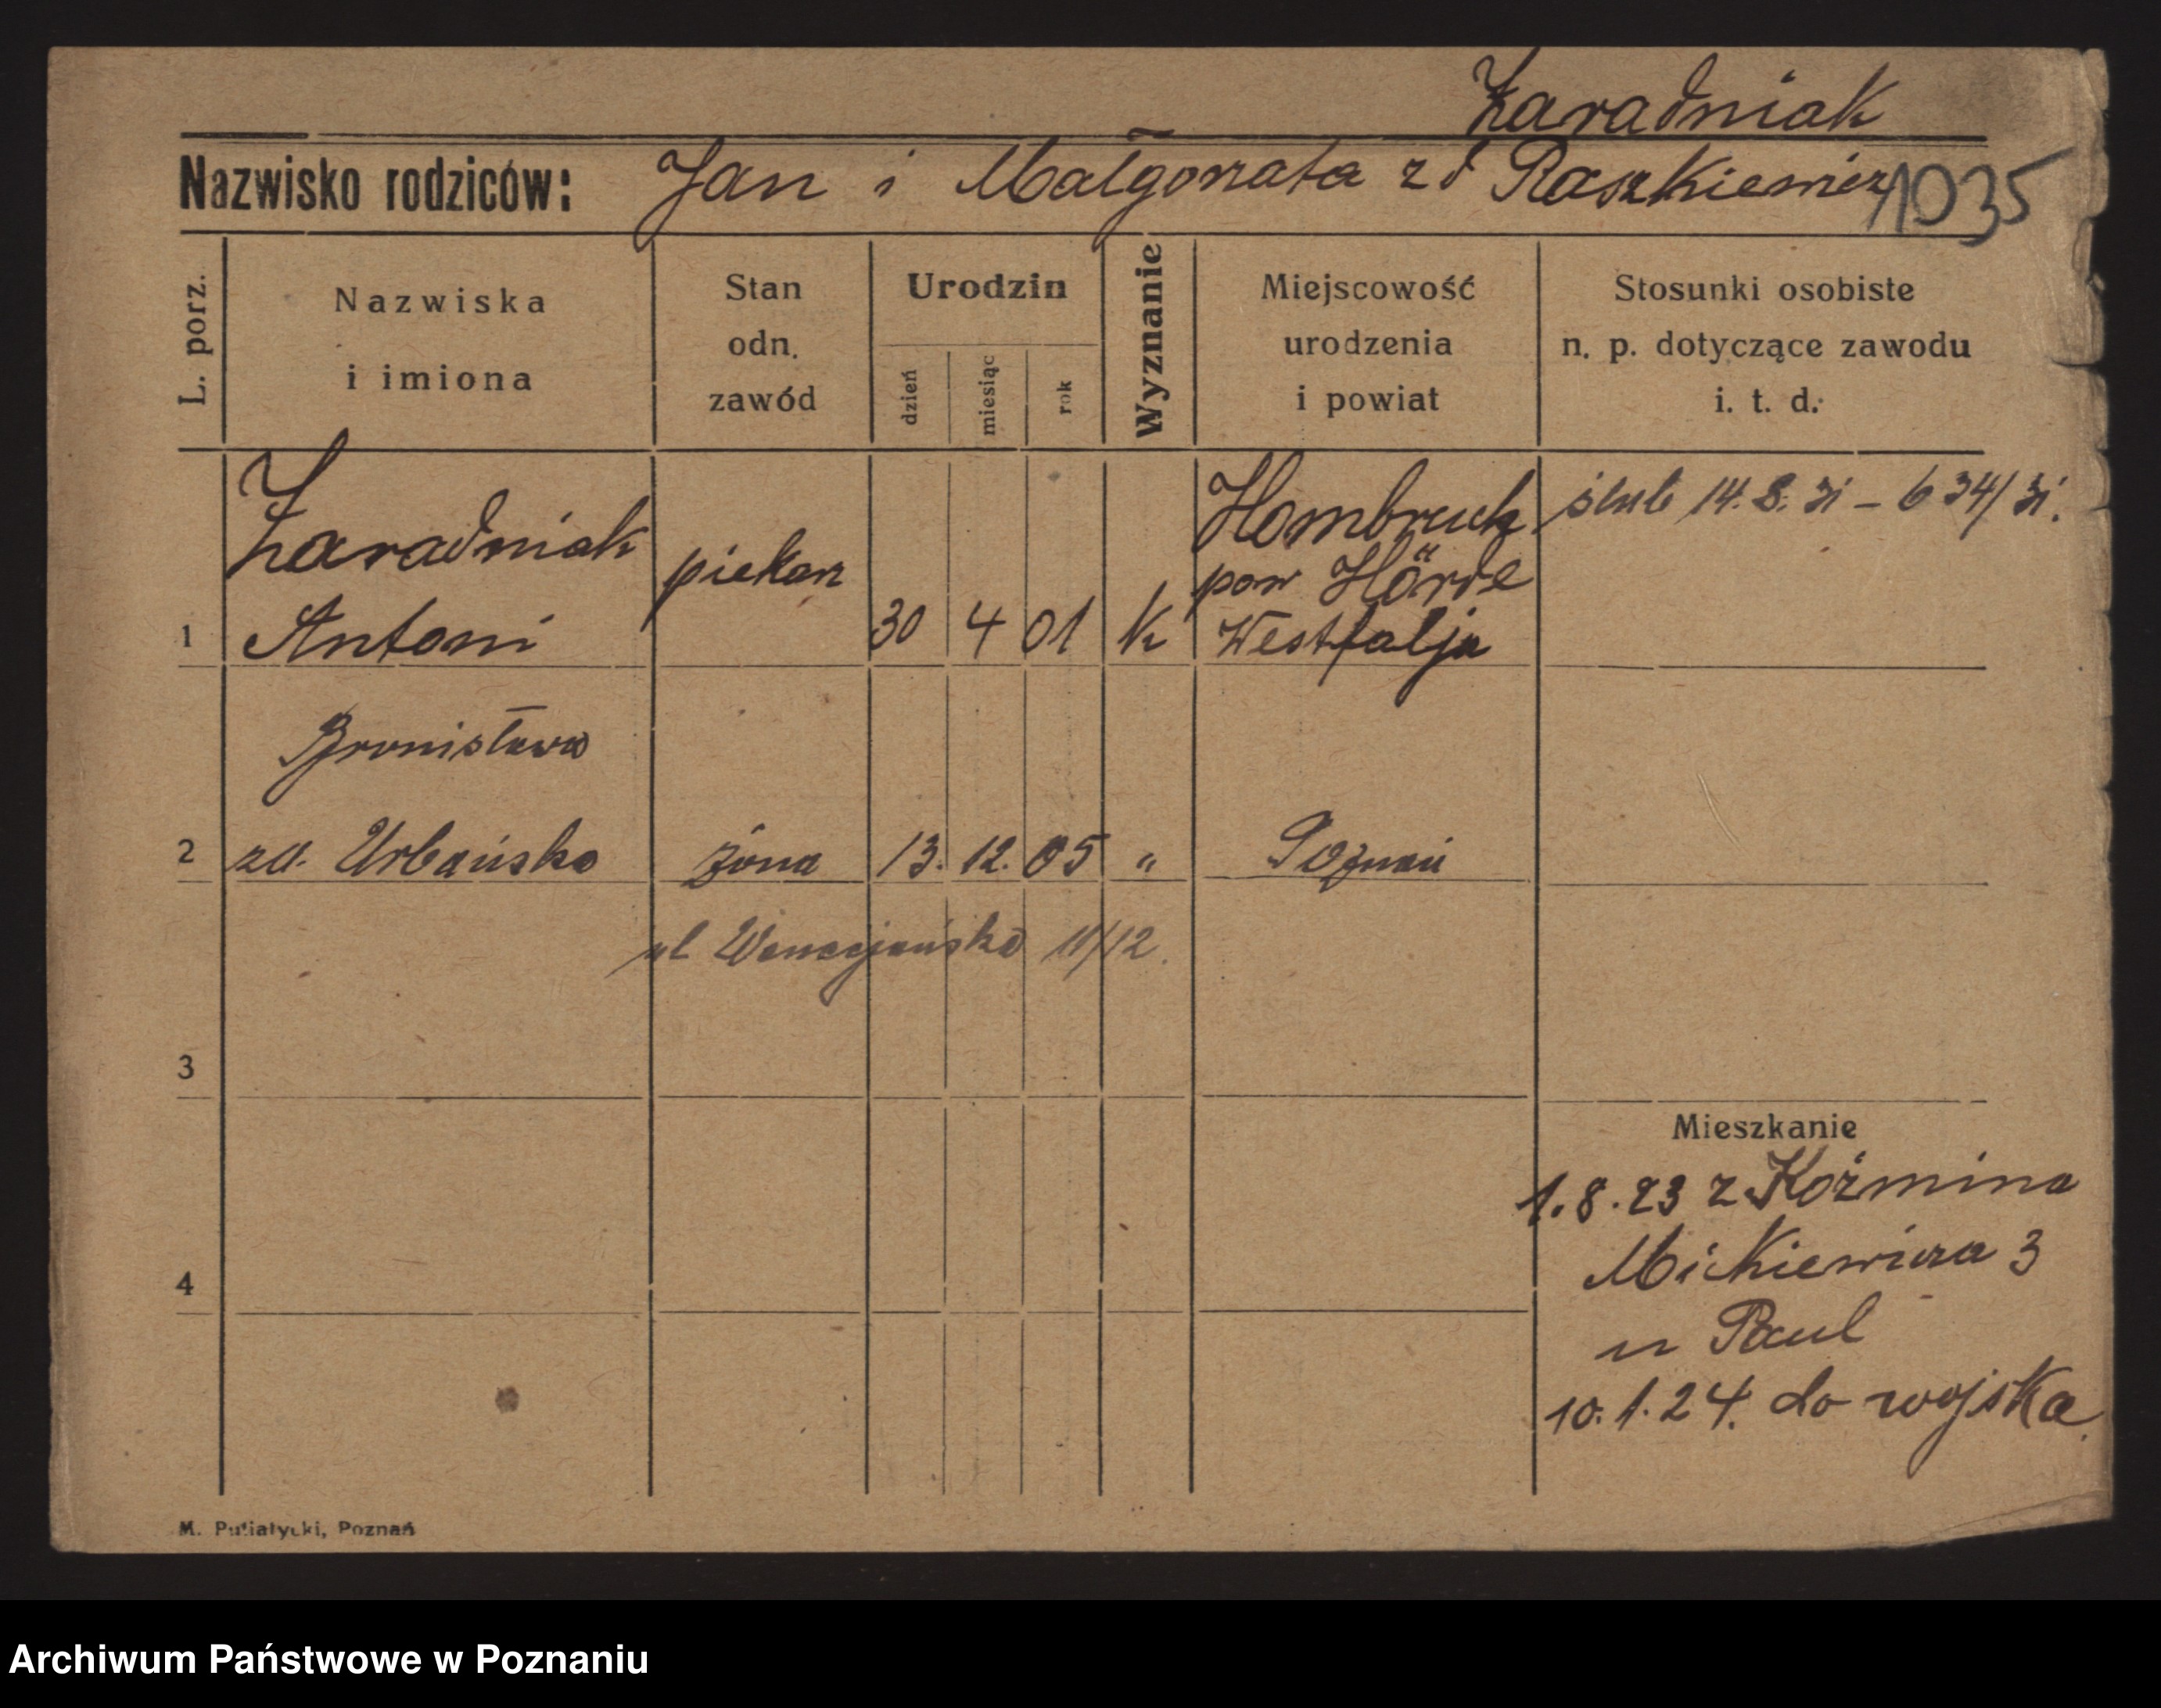 Zaradniak
Nazwisko rodziców: Jan i Małgorzata zd Raszkiewicz
1035
L. porz.
Nazwiska
i imiona
Stan
odn.
zawód
Urodzin
dzień
miesiąc
rok
Wyznanie
Miejscowość
urodzenia
i powiat
Stosunki osobiste
n. p. dotyczące zawodu
i. t. d.
1
Zaradniak
Antoni
piekarz
30 4 01 k
Hombruch
pow Hörde
Westfalja
ślub 14.8.31 – 634/31.
2
Bronisława
zd. Urbańska
żona 13. 12. 05 "
Poznań
ul Wenecjańska 11/12.
3
4
Mieszkanie
1.8.23 z Koźmina
Mickiewicza 3
u Paul
10.1.24. do wojska.
M. Putiatycki, Poznań
Archiwum Państwowe w Poznaniu